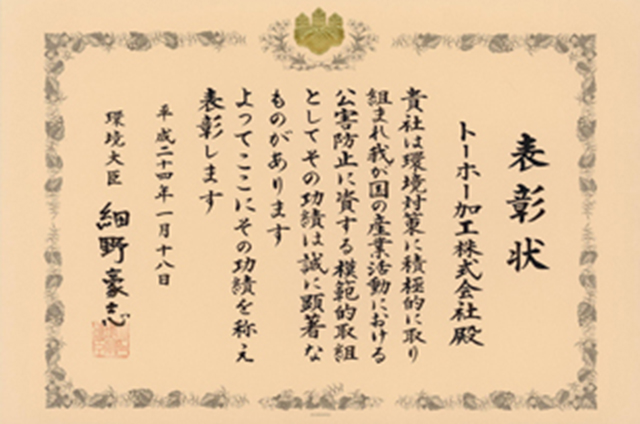 表彰状
トーホー加工株式会社殿
貴社は環境対策に積極的に取り
組まれ我が国の産業活動における
公害防止に資する模範的取組
としてその功績は誠に顕著な
ものがあります
よってここにその功績を称え
表彰します
平成二十四年一月十八日
環境大臣 細野豪志